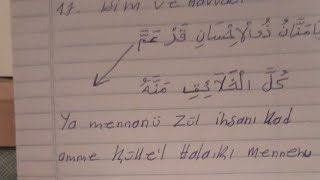 11. ve
يَامَنَّانُ ذُوالْاِحْسَانِ قَدْ عَمَّ
كُلَّ الْخَلَائِقِ مَنُّهُ
Ya mennanü zül ihsani kad
amme külle'l Halaiki mennehu